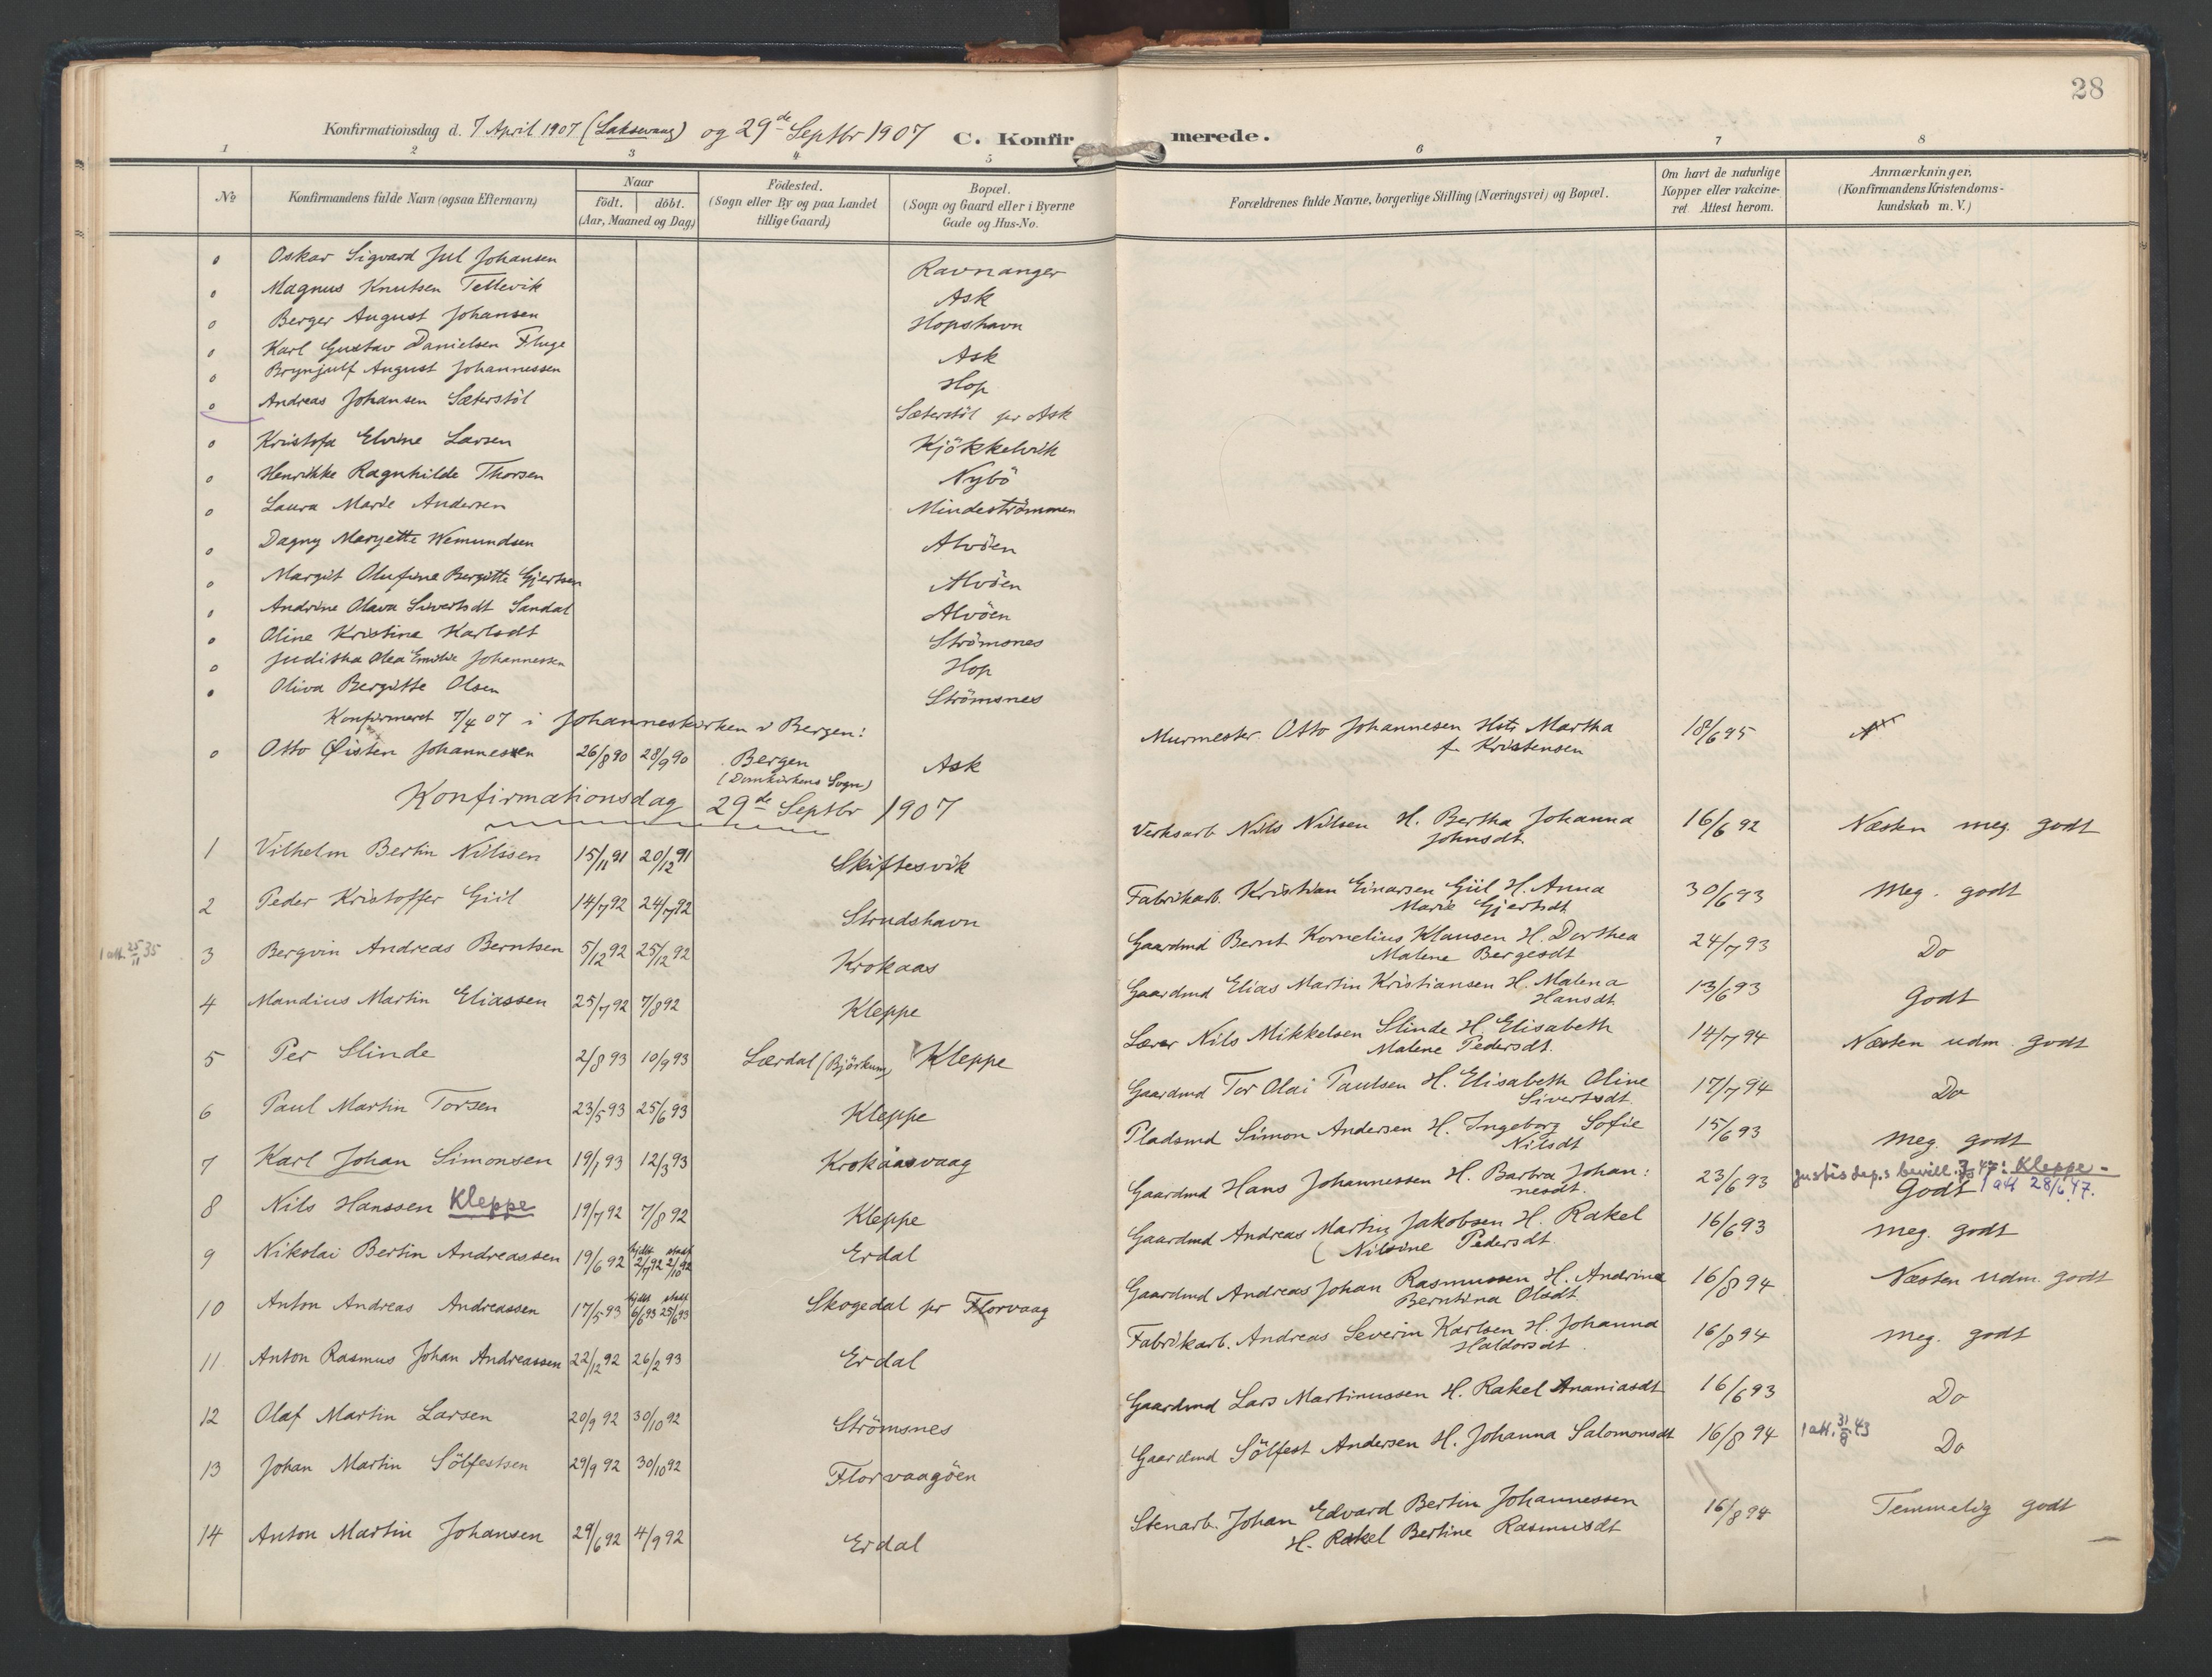 28
Konfirmationsdag d. 7 April 1907 (Laksevaag) og 29de Septbr 1907 C. Konfirmerede.
1 2 3 4 5 6 7 8
No
Konfirmandens fulde Navn (ogsaa Efternavn)
Naar
födt. döbt.
(Aar, Maaned og Dag)
Födested.
(Sogn eller By og paa Landet
tillige Gaard)
Bopæl.
(Sogn og Gaard eller i Byerne
Gade og Hus-No.
Forældrenes fulde Navne, borgerlige Stilling (Næringsvei) og Bopæl.
Om havt de naturlige
Kopper eller vakcine-
ret. Attest herom.
Anmærkninger.
(Konfirmandens Kristendoms-
kundskab m. V.)
o Oskar Sigvard Jul Johansen Ravnanger
o Magnus Knutsen Tellevik Ask
o Berger August Johansen Hopshavn
o Karl Gustav Danielsen Fluge Ask
o Brynjulf August Johannessen Hop
o Andreas Johansen Sæterstöl Sæterstöl pr Ask
o Kristofa Elvine Larsen Kjökkelvik
o Henrikke Ragnhilde Thorsen Nybö
o Laura Marie Andersen Mindeströmmen
o Dagny Marjette Wemundsen Alvöen
o Margit Olufine Bergitte Gjertsen Alvöen
o Andrine Olava Sivertsdt Sandal Alvöen
o Oline Kristine Karlsdt Strömsnes
o Juditha Olea Emilie Johannessen Hop
o Oliva Bergitte Olsen Strömsnes
Konfirmeret 7/4 07 i Johanneskirken i Bergen:
o Otto Øisten Johannessen 26/8 90 28/9 90 Bergen Ask Murmester Otto Johannesen Hstr Martha 18/6 95
(Domkirkens Sogn) f. Kristensen
Konfirmationsdag 29de Septbr 1907
1 Vilhelm Bertin Nilssen 15/11 91 20/12 91 Skiftesvik Verksarb Nils Nilsen H. Bertha Johanna 16/6 92 Næsten meg. godt
Johnsdt.
2 Peder Kristoffer Giil 14/7 92 24/7 92 Strudshavn Fabrikarb. Kristian Einarsen Giil H. Anna 30/6 93 Meg. godt
Marie Gjertsdt.
1 att. 25/11 35 3 Bergvin Andreas Berntsen 5/12 92 25/12 92 Krokaas Gaardmd Bernt Kornelius Klausen H. Dorthea 24/7 93 Do
Malene Bergesdt
4 Mandius Martin Eliassen 25/7 92 7/8 92 Kleppe Gaardmd Elias Martin Kristiansen H. Malena 13/6 93 Godt
Hansdt.
5 Per Slinde 2/8 93 10/9 93 Lærdal (Björkum) Kleppe Lærer Nils Mikkelsen Slinde H. Elisabeth 14/7 94 Næsten udm. godt
Malene Pedersdt.
6 Paul Martin Torsen 23/5 93 25/6 93 Kleppe Gaardmd Tor Olai Paulsen H. Elisabeth Oline 17/7 94 Do
Sivertsdt.
7 Karl Johan Simonsen 19/1 93 12/3 93 Krokaasvaag Pladsmd Simon Andersen H. Ingeborg Sofie 15/6 93 Meg. godt
Nilsdt
8 Nils Hanssen Kleppe 19/7 92 7/8 92 Kleppe Gaardmd Hans Johannessen H. Barbra Johan: 23/6 93 Godt
nesdt.
Kleppe -
1 att 28/6.47.
9 Nikolai Bertin Andreassen 19/6 92 hjdt 2/7 92 stadf 2/10 92 Erdal Gaardmd Andreas Martin Jakobsen H. Rakel 16/6 93 Meg. godt
( Nilsine Pedersdt.
10 Anton Andreas Andreassen 17/5 93 hjdt 6/6 93 stadf 25/6 93 Skogedal pr Florvaag Gaardmd Andreas Johan Rasmussen H. Andrine 16/8 94 Næsten udm. godt
Berntina Olsdt
11 Anton Rasmus Johan Andreassen 22/12 92 26/2 93 Erdal Fabrikarb. Andreas Severin Karlsen H. Johanna 16/8 94 Meg. godt
Haldorsdt.
12 Olaf Martin Larsen 20/9 92 30/10 92 Strömsnes Gaardmd Lars Martinussen H. Rakel Ananiasdt 16/6 93 Do
13 Johan Martin Sölfestsen 29/9 92 30/10 92 Florvaagöen Gaardmd Sölfest Andersen H. Johanna Salomonsdt 16/8 94 1 att. 31/8 43 Do
14 Anton Martin Johansen 29/6 92 4/9 92 Erdal Stenarb. Johan Edvard Bertin Johannessen 16/8 94 Temmelig godt
H. Rakel Bertine Rasmusdt